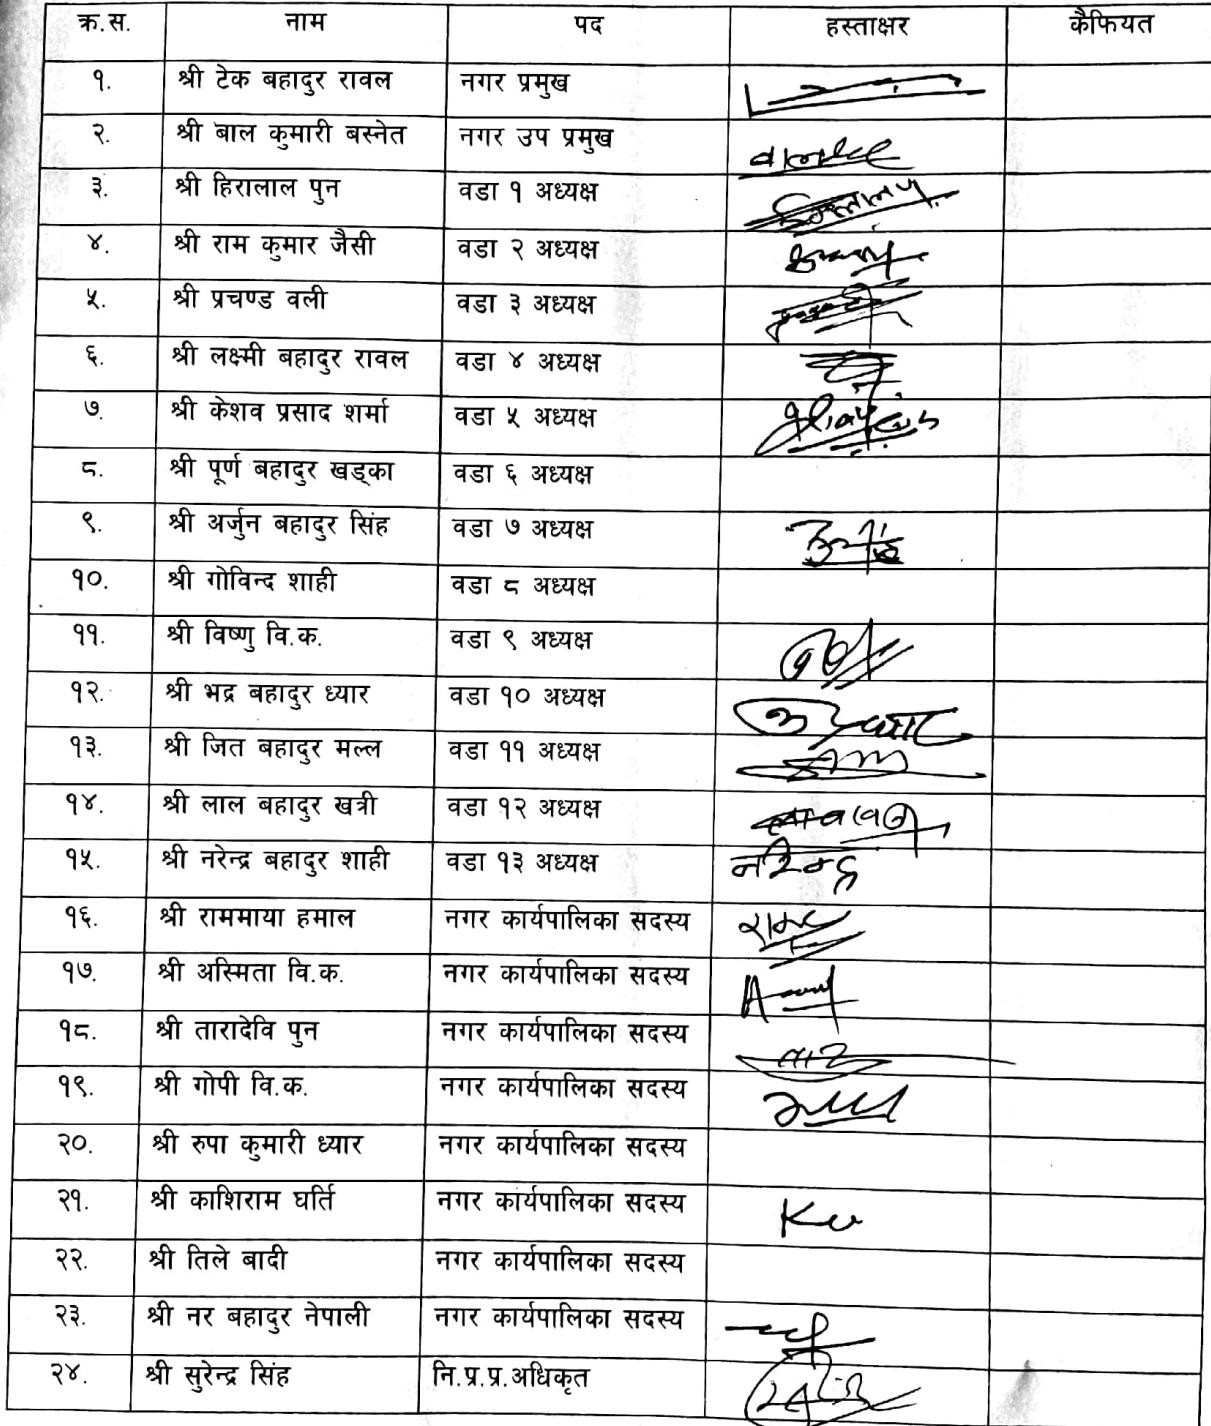 क्र.स. नाम पद हस्ताक्षर कैफियत
१. श्री टेक बहादुर रावल नगर प्रमुख
२. श्री बाल कुमारी बस्नेत नगर उप प्रमुख
३. श्री हिरालाल पुन वडा १ अध्यक्ष
४. श्री राम कुमार जैसी वडा २ अध्यक्ष
५. श्री प्रचण्ड वली वडा ३ अध्यक्ष
६. श्री लक्ष्मी बहादुर रावल वडा ४ अध्यक्ष
७. श्री केशव प्रसाद शर्मा वडा ५ अध्यक्ष
८. श्री पूर्ण बहादुर खड्का वडा ६ अध्यक्ष
९. श्री अर्जुन बहादुर सिंह वडा ७ अध्यक्ष
१०. श्री गोविन्द शाही वडा ८ अध्यक्ष
११. श्री विष्णु वि.क. वडा ९ अध्यक्ष
१२. श्री भद्र बहादुर ध्यार वडा १० अध्यक्ष
१३. श्री जित बहादुर मल्ल वडा ११ अध्यक्ष
१४. श्री लाल बहादुर खत्री वडा १२ अध्यक्ष
१५. श्री नरेन्द्र बहादुर शाही वडा १३ अध्यक्ष नरेन्द्र
१६. श्री राममाया हमाल नगर कार्यपालिका सदस्य
१७. श्री अस्मिता वि.क. नगर कार्यपालिका सदस्य
१८. श्री तारादेवि पुन नगर कार्यपालिका सदस्य
१९. श्री गोपी वि.क. नगर कार्यपालिका सदस्य
२०. श्री रुपा कुमारी ध्यार नगर कार्यपालिका सदस्य
२१. श्री काशिराम घर्ति नगर कार्यपालिका सदस्य
२२. श्री तिले बादी नगर कार्यपालिका सदस्य
२३. श्री नर बहादुर नेपाली नगर कार्यपालिका सदस्य
२४. श्री सुरेन्द्र सिंह नि.प्र.प्र.अधिकृत